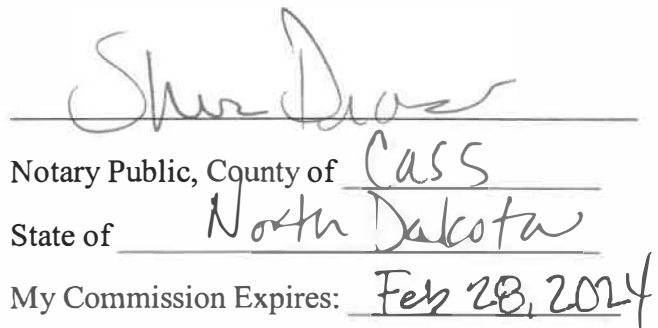 Notary Public, County of Cass
State of North Dakota
My Commission Expires: Feb 28, 2024